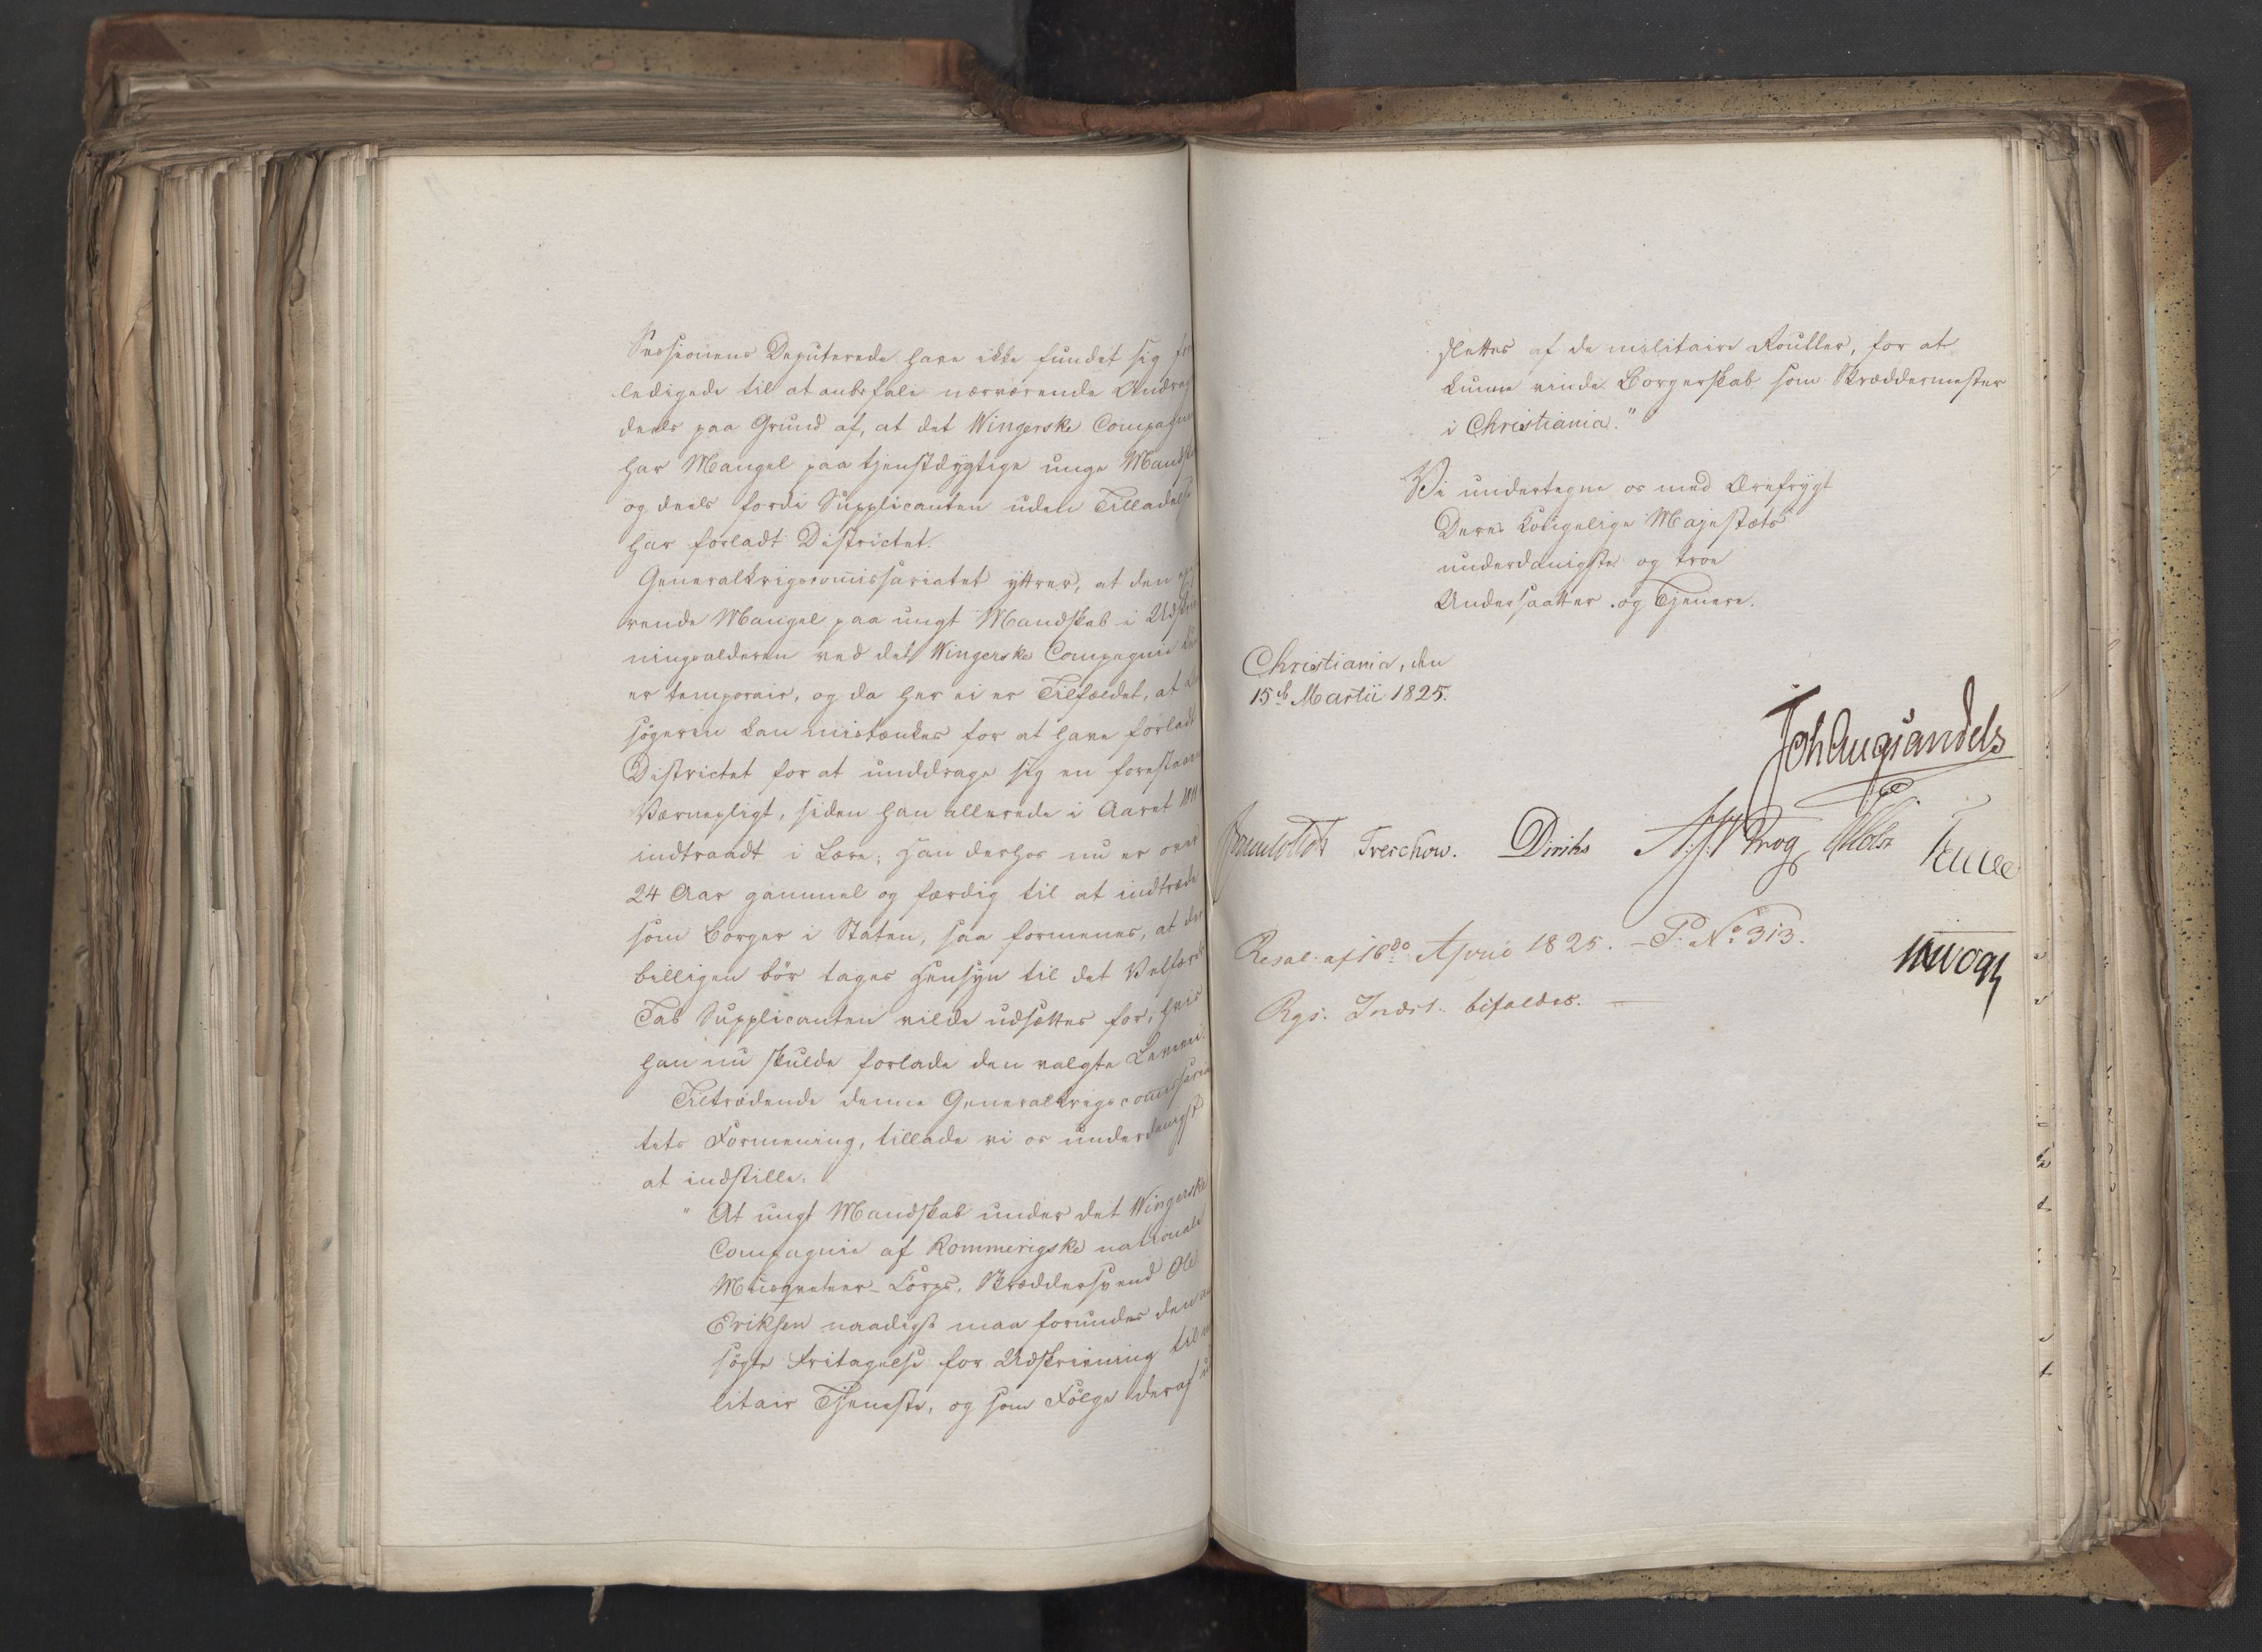 Sessionens Deputerede have ikke fundet sig
ledigede til at anbefale nærværende Andrag
deels paa Grund af, at det Wingerske Compagnie
har Mangel paa tjenstdygtige unge Mandsk
og deels fordi Supplicanten uden Tilladelse
har forladt Districtet.
Generalkrigscomissariatet yttrer, at den
rende Mangel paa ungt Mandskab i Udskriv
ningsalderen ved det Wingerske Compagnie
er temporair, og da her ei er Tilfældet, at
søgeren kan mistænkes for at have forladt
Districtet for at unddrage sig en forestaaen
Værnepligt, siden han allerede i Aaret 1811
indtraadt i Lære; han derhos nu er over
24 Aar gammel og færdig til at indtræde
som Borger i Staten, saa formenes, at der
billigen bör tages Hensyn til det Velfærds
Tab Supplicanten vilde udsættes for, hvis
han nu skulde forlade den valgte Levevei.
Tiltrædende denne Generalkrigscomissaria
tets Formening, tillade vi os underdanigst
at indstille:
" At ungt Mandskab under det Wingerske
Compagnie af Rommerigske nationale
Musqueteer-Corps, Skræddersvend Ole
Eriksen naadigst maa forundes den an
søgte Fritagelse for Udskrivning til mi
litair Tjeneste, og som Følge deraf ud
slettes af de militaire Rouller, for at
kunne vinde Borgerskab som Skræddermester
i Christiania."
Vi undertegne os med Ærefrygt
Deres Kongelige Majestæts
underdanigste og troe
Undersaatter og Tjenere.
Christiania, den
15de Martii 1825.
Joh Aug Sandels
Treschow. Diriks Holst
Resol. af 16de April 1825. - P. No 313.
Rgs. Indst. bifaldes. —